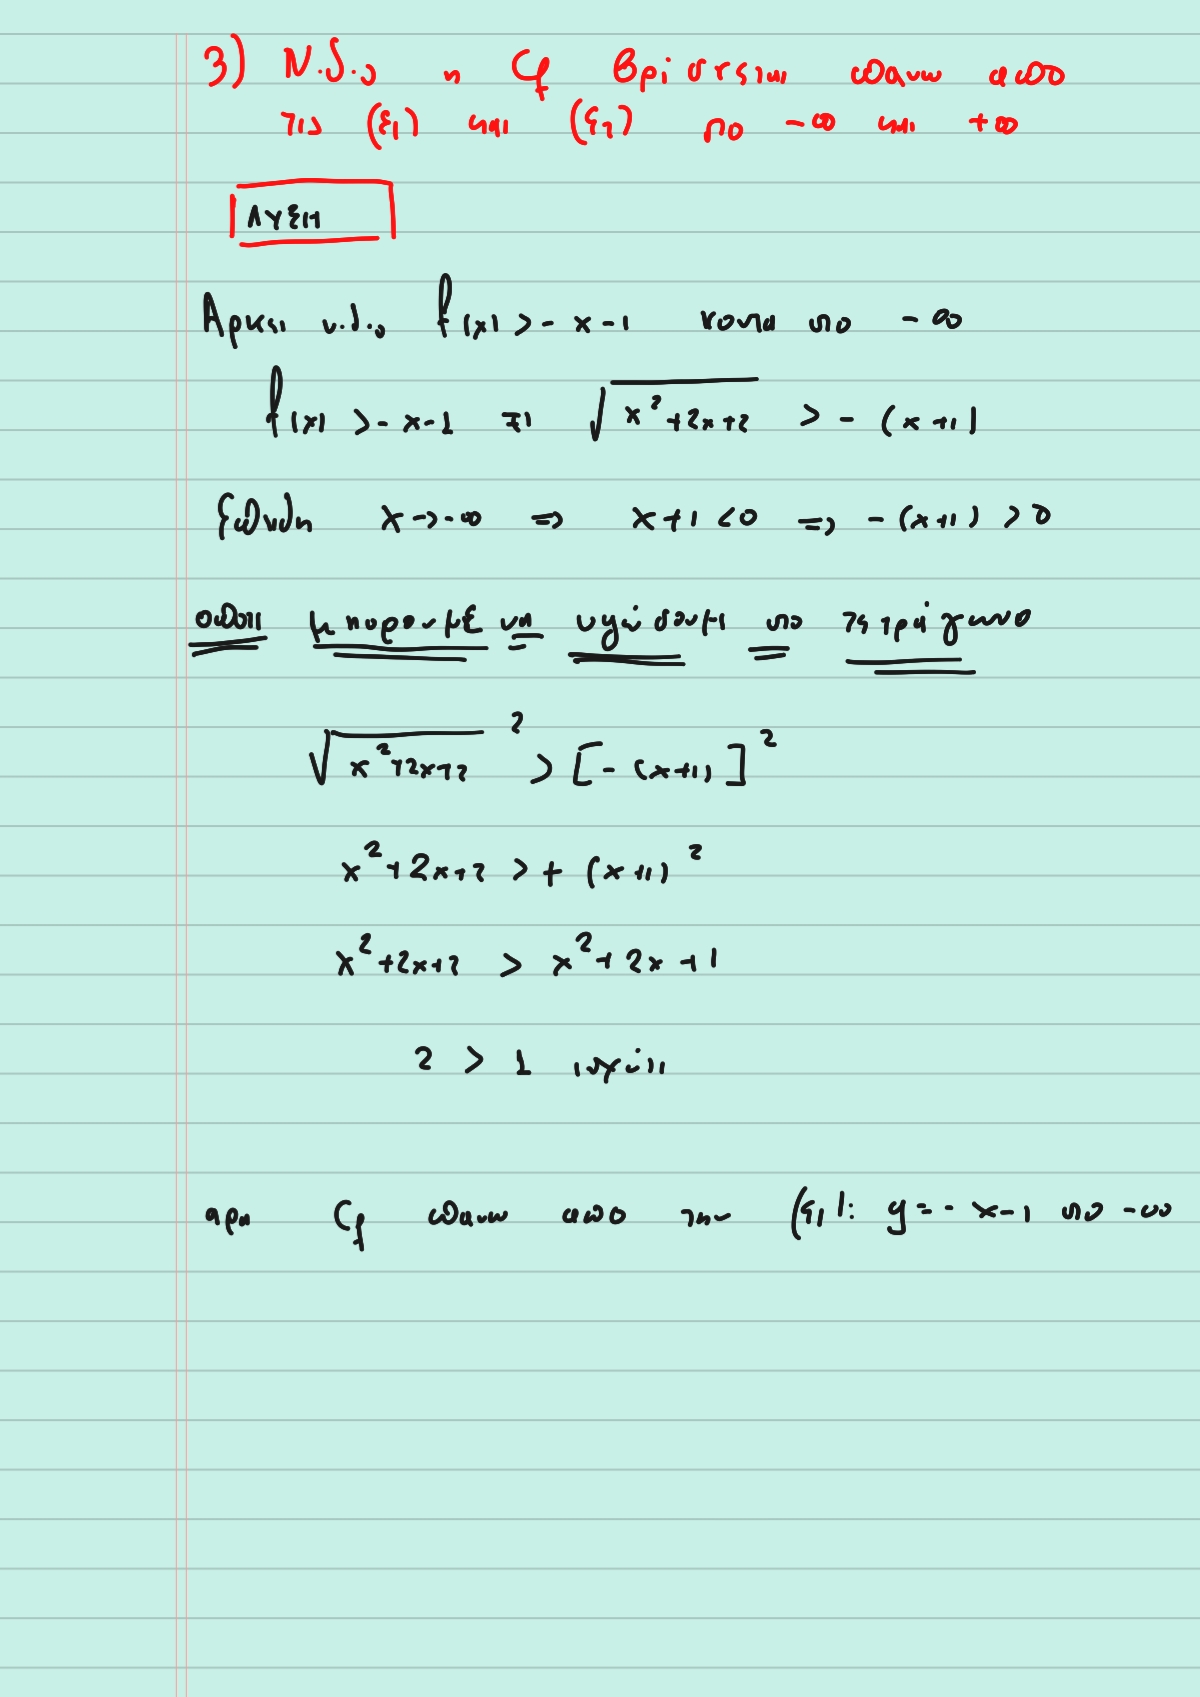 3) Ν.δ.ο η Cf βρίσκεται πανω απο
τις (ε₁) και (ε₂) στο -∞ και +∞
ΛΥΣΗ
Αρκει ν.δ.ο f(x) > -x-1 κοντα στο -∞
f(x) > -x-1 ⇔ √(x²+2x+2) > -(x+1)
Επειδη x→-∞ ⇒ x+1<0 ⇒ -(x+1) >0
οποτε μπορουμε να υψώσουμε στο τετράγωνο
√(x²+2x+2)² > [-(x+1)]²
x²+2x+2 > + (x+1)²
x²+2x+2 > x²+2x+1
2 > 1 ισχύει
αρα Cf πανω απο την (ε₁): y=-x-1 στο -∞